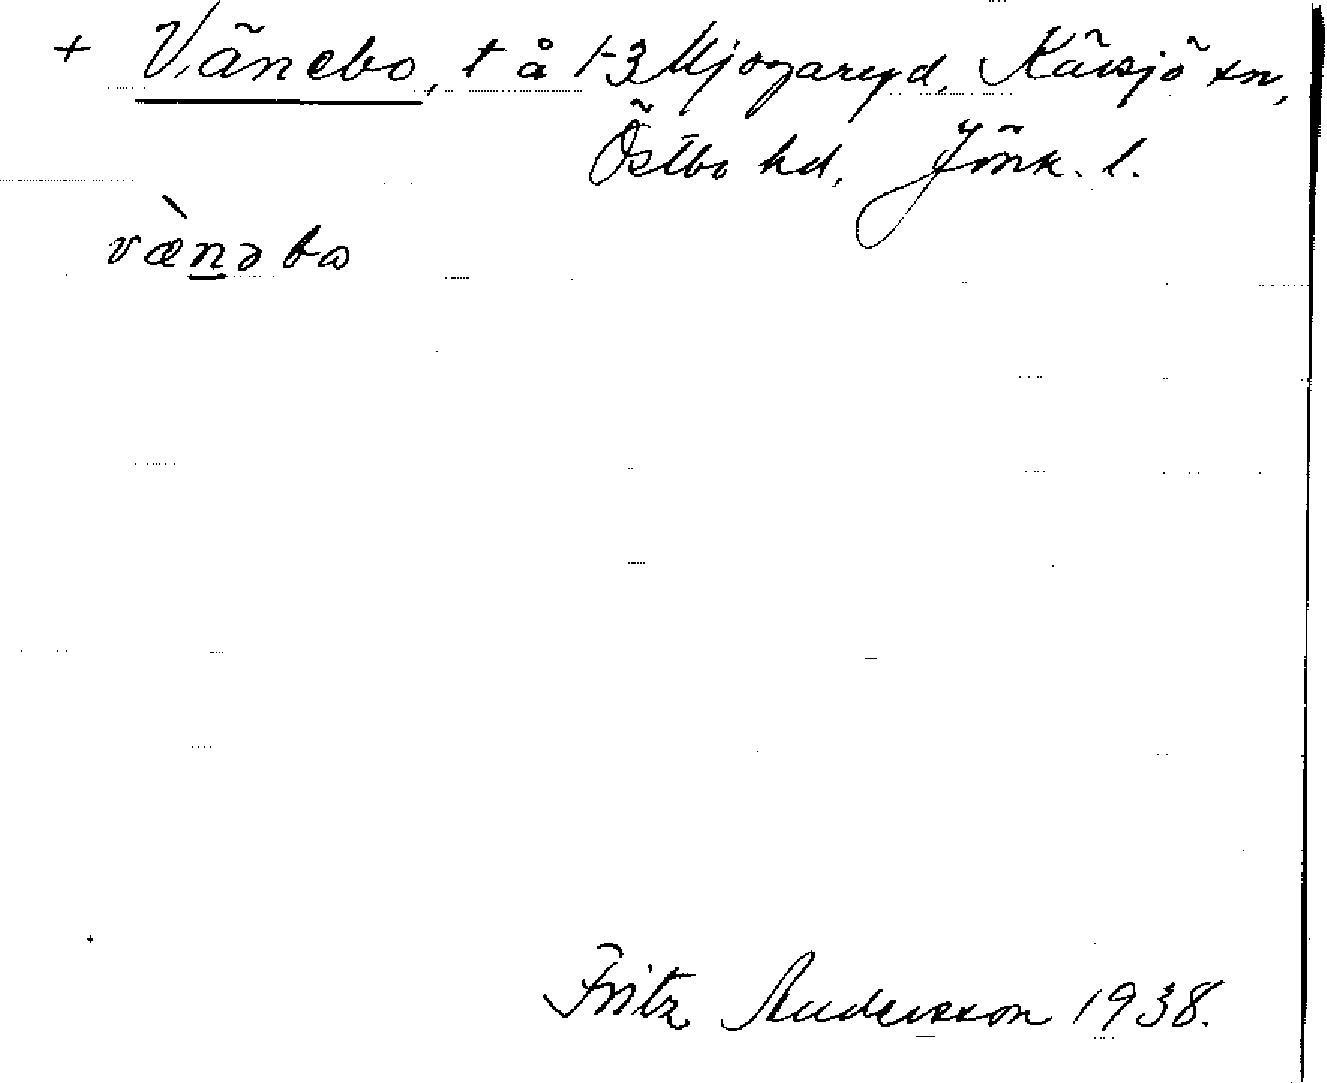 + Vänebo, t å 1-3 Mjogaryd, Kävsjö sn,
Östbo hd, Jönk. l.
væ̀nəbo
Fritz Andersson 1938.